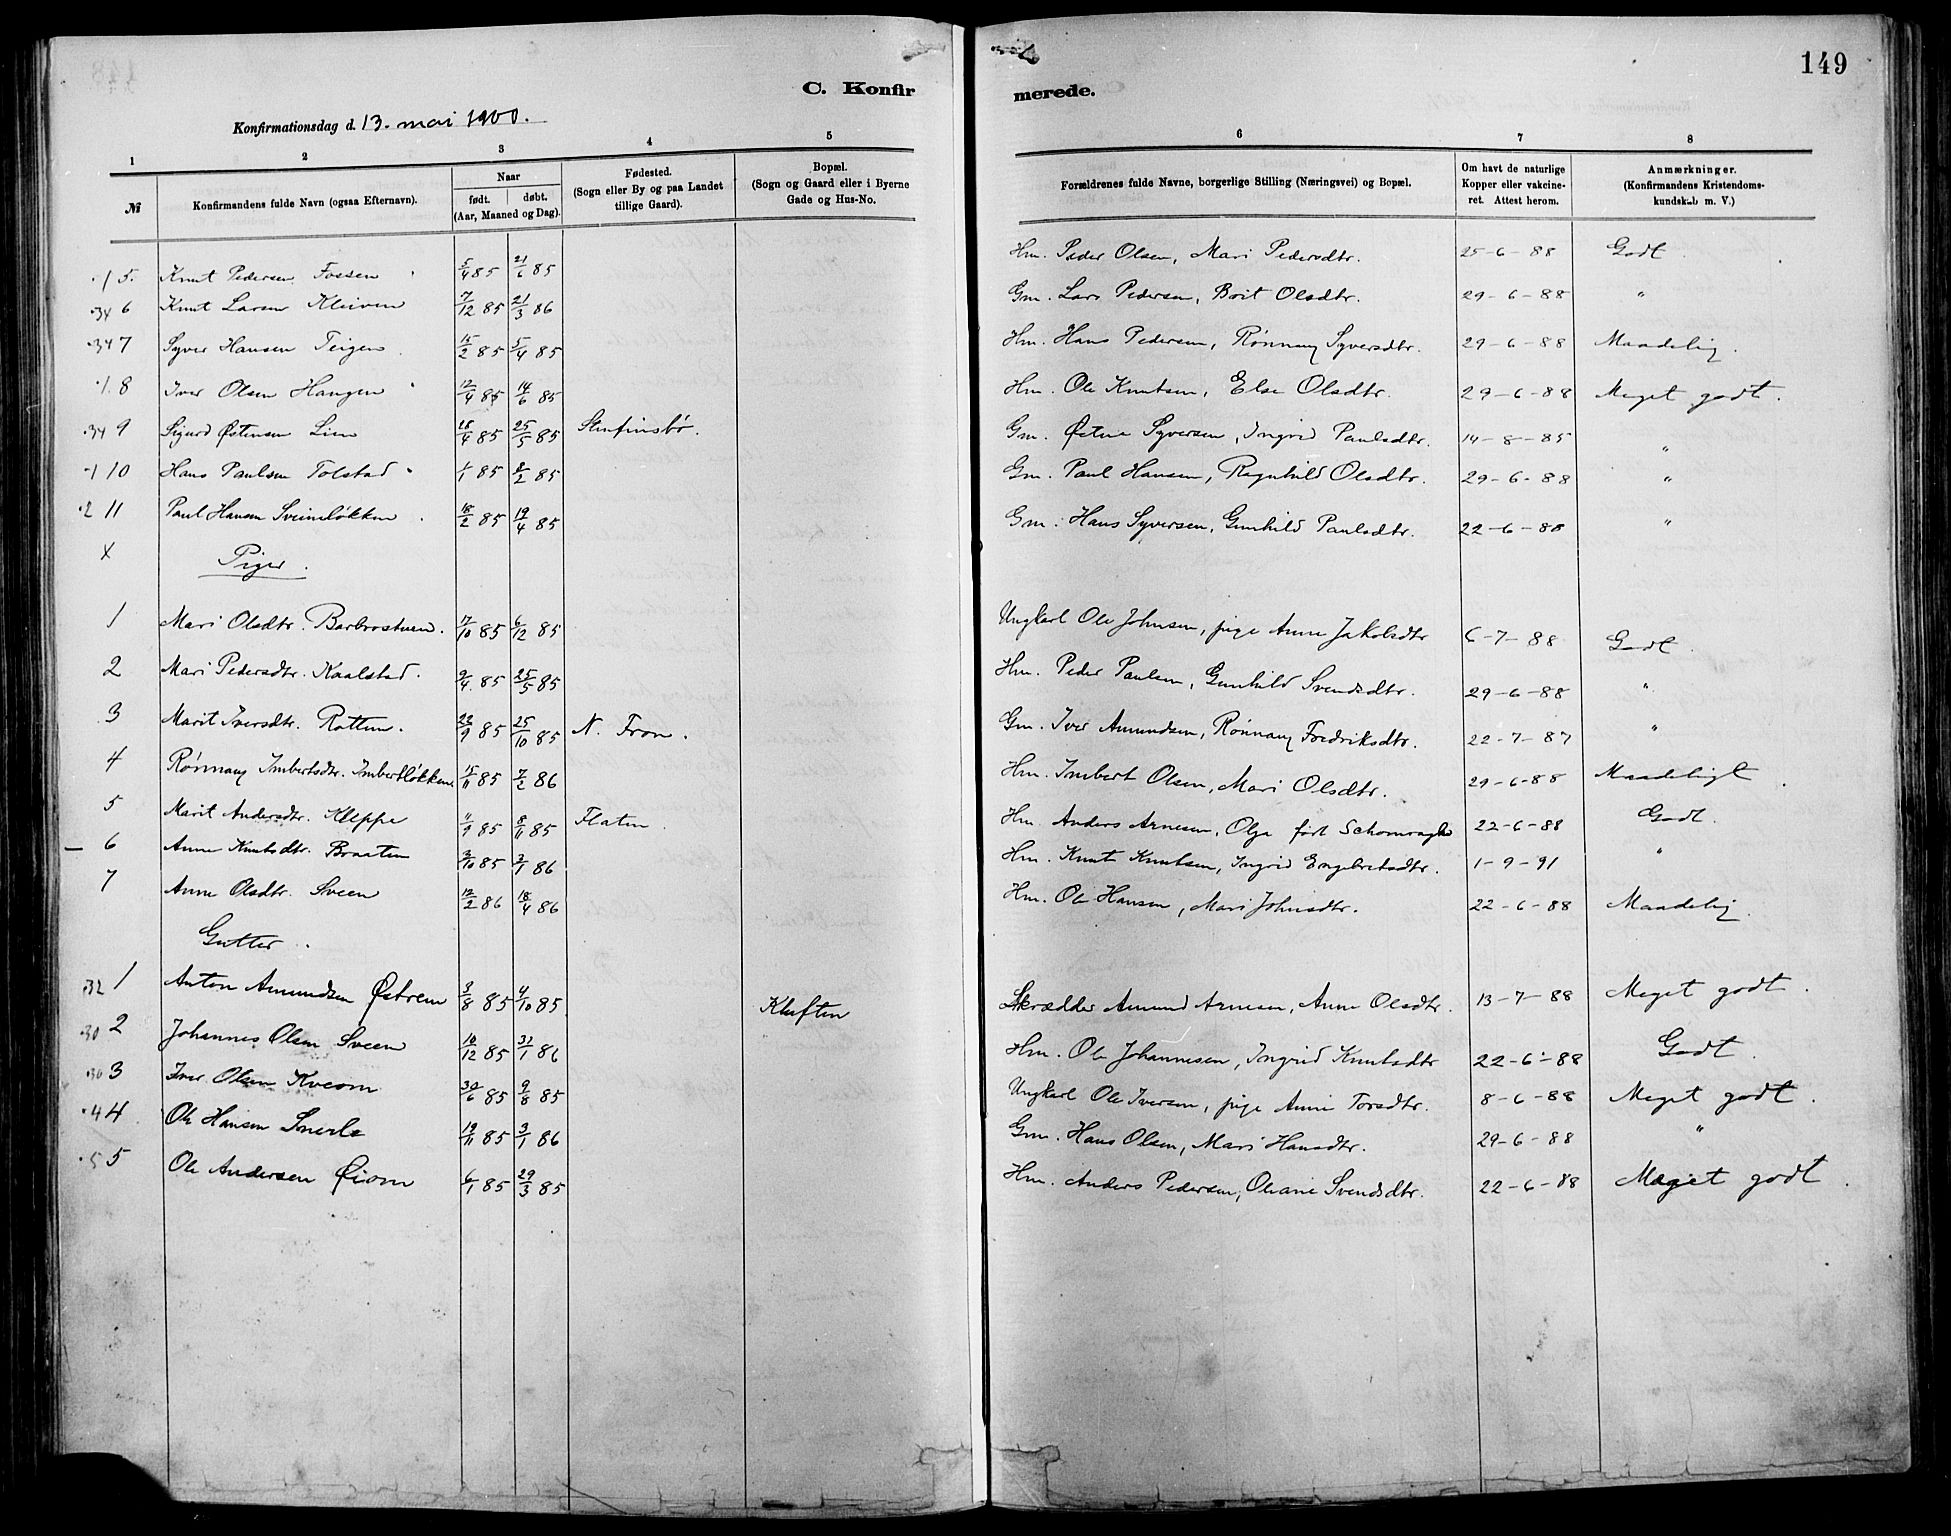 149
C. Konfirmerede.
Konfirmationsdag d. 13. mai 1900.
1 2 3 4 5 6 7 8
№ Konfirmandens fulde Navn (ogsaa Efternavn). Naar født. døbt. (Aar, Maaned og Dag). Fødested. (Sogn eller By og paa Landet tillige Gaard). Bopæl. (Sogn og Gaard eller i Byerne Gade og Hus-No. Forældrenes fulde Navne, borgerlige Stilling (Næringsvei) og Bopæl. Om havt de naturlige Kopper eller vakcineret. Attest herom. Anmærkninger. (Konfirmandens Kristendomskundskab m. V.)
·1 5. Knut Pedersen Fossen 5/4 85 21/6 85 Hm. Peder Olsen, Mari Pedersdtr. 25-6-88 Godt
·34 6 Knut Larsen Kleiven 7/12 85 21/3 86 Gm. Lars Pedersen, Brit Olsdtr. 29-6-88 "
·34 7 Syver Hansen Teigen 15/2 85 5/4 85 Hm. Hans Pedersen, Rønnaug Syversdtr. 29-6-88 Maadelig.
·1 8 Iver Olsen Haugen 12/4 85 14/6 85 Hm. Ole Knutsen, Else Olsdtr. 29-6-88 Meget godt.
·34 9 Sigurd Østensen Lien 28/4 85 25/5 85 Stenfinsbø. Gm. Østen Syversen, Ingrid Paulsdtr. 14-8-85 "
·1 10 Hans Paulsen Tolstad 1/1 85 2/2 85 Gm. Paul Hansen, Ragnhild Olsdtr. 29-6-88 "
·2 11 Paul Hansen Sveineløkken 18/2 85 19/4 85 Gm. Hans Syversen, Gunhild Paulsdtr. 22-6-88 "
x Piger.
1 Mari Olsdtr. Barbrostuen. 17/10 85 6/12 85 Ungkarl Ole Johnsen, pige Anne Jakobsdtr 6-7-88 Godt.
2 Mari Pedersdtr. Kaalstad. 9/4 85 25/5 85 Hm. Peder Paulsen, Gunhild Svendsdtr. 29-6-88 "
3 Marit Iversdtr. Rotten. 22/9 85 25/10 85 N. Fron. Gm. Iver Amundsen, Rønnaug Fredriksdtr. 22-7-87 "
4 Rønnaug Imbertsdtr. Imbertløkken 15/11 85 7/2 86 Hm. Imbert Olsen, Mari Olsdtr. 29-6-88 Maadeligt
5 Marit Andersdtr. Kleppe 11/9 85 8/11 85 Flaten Hm. Anders Arnesen, Olga født 22-6-88 Godt.
6 Anne Knutsdtr. Braaten 3/10 85 3/1 86 Hm. Knut Knutsen, Ingrid Engebretsdtr. 1-9-91 "
7 Anne Olsdtr. Sveen 12/2 86 18/4 86 Hm. Ole Hansen, Mari Johnsdtr. 22-6-88 Maadelig.
Gutter.
·32 1 Anton Amundsen Østrem 3/8 85 4/10 85 Kluften Skrædder Amund Arnesen, Anne Olsdtr. 13-7-88 Meget godt.
·30 2 Johannes Olsen Sveen 10/12 85 31/1 86 Hm. Ole Johannesen, Ingrid Knutsdtr 22-6-88 Godt.
·30 3 Iver Olsen Kveom 30/6 85 9/8 85 Ungkarl Ole Iversen, pige Anne Torsdtr. 8-6-88 Meget godt.
·4 4 Ole Hansen Snerle 19/11 85 3/1 86 Gm. Hans Olsen, Mari Hansdtr. 29-6-88 "
·5 5 Ole Andersen Øiom 6/1 85 29/3 85 Hm. Anders Pedersen, Oleane Svendsdtr. 22-6-88 Meget godt.